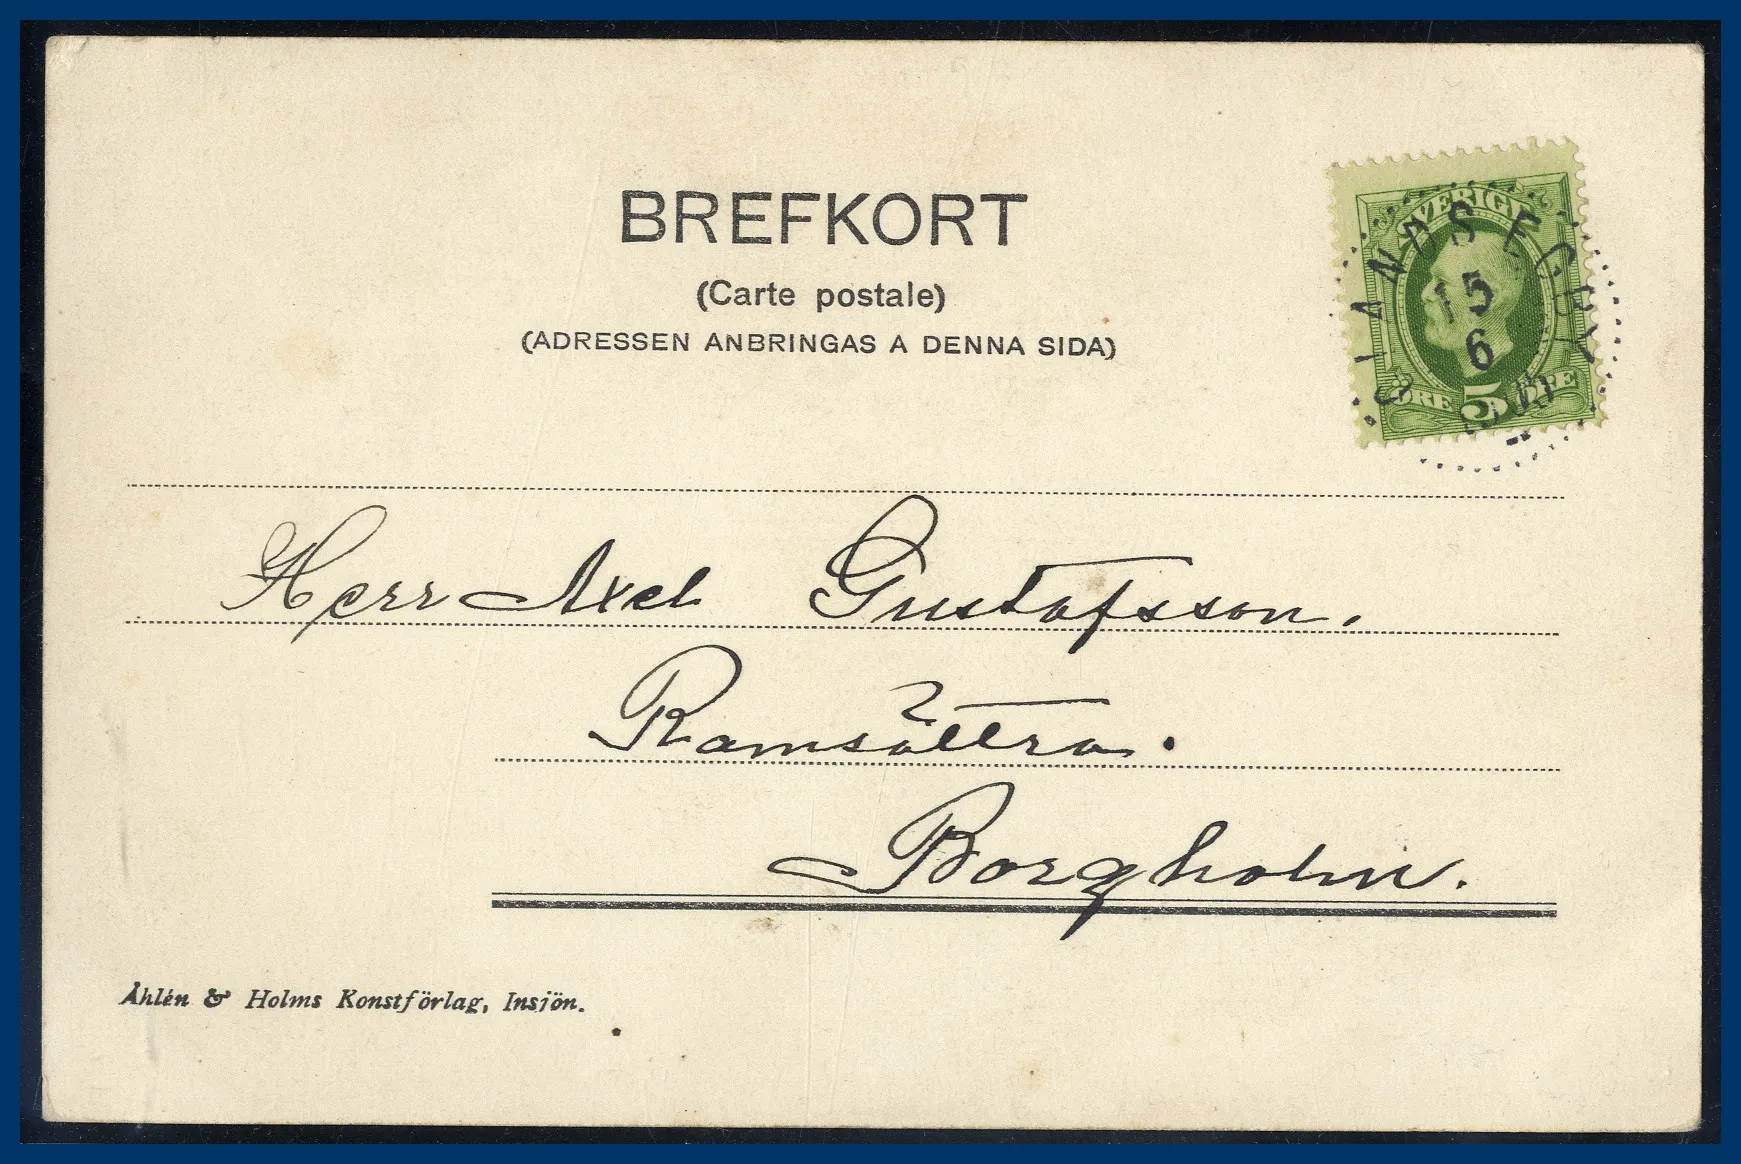 BREFKORT
(Carte postale)
(ADRESSEN ANBRINGAS A DENNA SIDA)
SVERIGE
15
6
ÖRE 5 ÖRE
Herr Axel Gustafsson.
Ramsättra.
Borgholm.
Åhlén & Holms Konstförlag, Insjön.